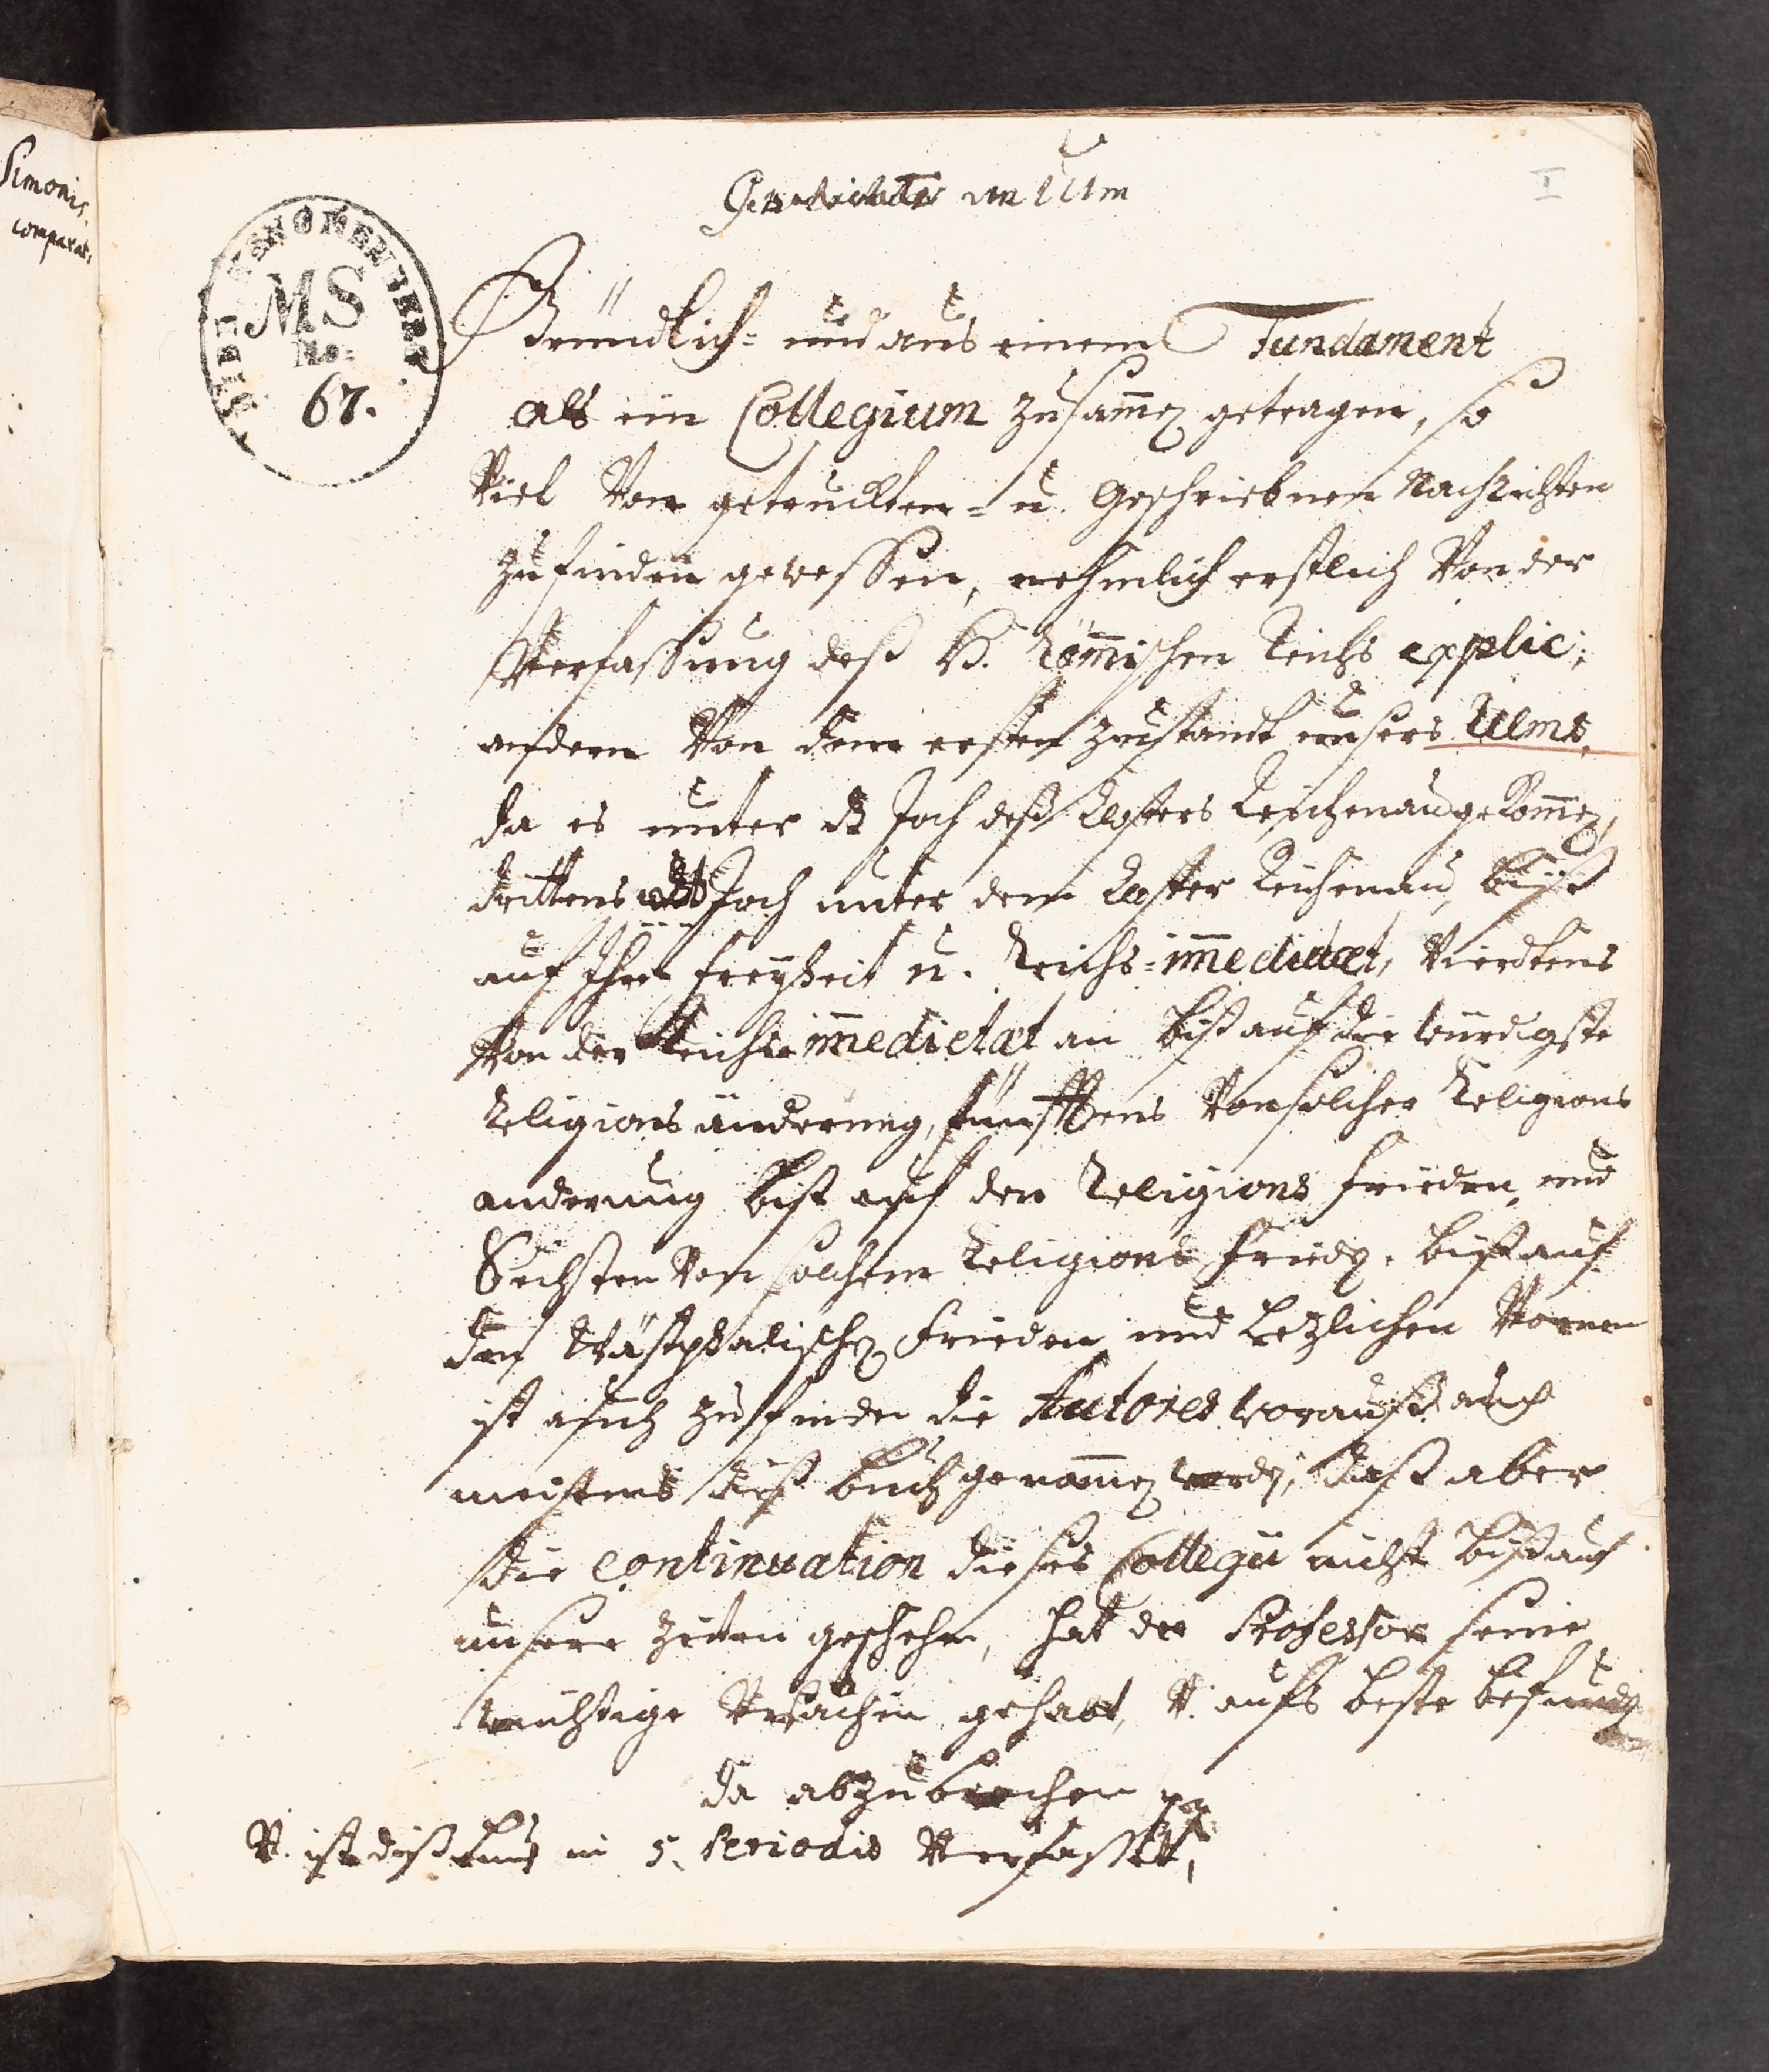 Simonis,
comparat,
I
Geschichte von Ulm
MS
No:
67.
Gründlich- und aus einem Fundament
als ein Collegium zusamen getragen, so
Viel Von getruckten- u. Geschriebnen Nachrichten
zu finden gewessen, nehmlich erstlich Von der
Verfassung deß H. Römischen Reichs explic:
andern Von dem ersten Zustandt unsers Ulms,
da es unter dz Joch deß Closters Reichenau gekommen,
drittens Joch unter dem Closter Reichenau, biß
auf Ihre freyheit u. Reichs-immedietæt, Vierdtens
Von der Reichs immedietæt an biß auf die würdigste
Religions änderung, fünfftens Von solcher Religions
anderung biß auf den Religions frieden, und
Sechsten Von solchem Religions frieden. biß auf
den Wästphalischen Frieden und Lezlichen Vornen
ist auch zu finden die Autores worauß auch
meistens diß buch genommen worden, daß aber
die continuation dieses Collegii nicht biß auf
unsere Zeiten geschehen, hat der Professor seine
wichtige Ursachen gehabt, V. aufs beste befunden
da abzubrechen
V. ist diß buch in 5. Periodis Verfasset,